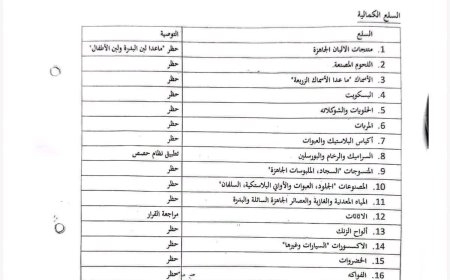 السلع الكمالية
السلع التوصية
1. منتجات الالبان الجاهزة حظر "ماعدا لبن البدرة ولبن الأطفال"
2. اللحوم المصنعة. حظر
3. الأسماك "ما عدا الأسماك الزريعة" حظر
4. البسكويت حظر
5. الحلويات والشوكلاته حظر
6. المربات حظر
7. أكياس البلاستيك والعبوات حظر
8. السراميك والرخام والبورسلين تطبيق نظام حصص
9. المنسوجات "السجاد، الملبوسات الجاهزة" حظر
10. المصنوعات "الجلود، العبوات والأواني البلاستيكية، السلفان" حظر
11. المياه المعدنية والغازية والعصائر الجاهزة السائلة والبدرة حظر
12. الاثاثات مراجعة القرار
13. ألواح الزنك حظر
14. الاكسسورات "السيارات وغيرها" حظر
15. الخضروات حظر
16. الفواكه حظر